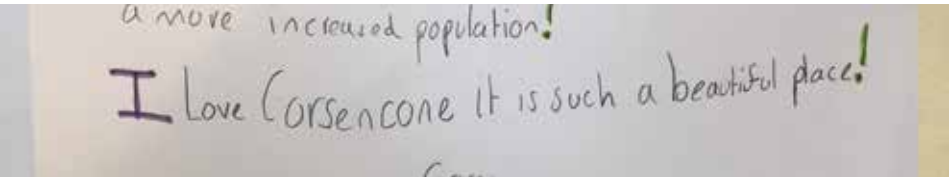 a more increased population!
I Love Corsencone it is such a beautiful place!